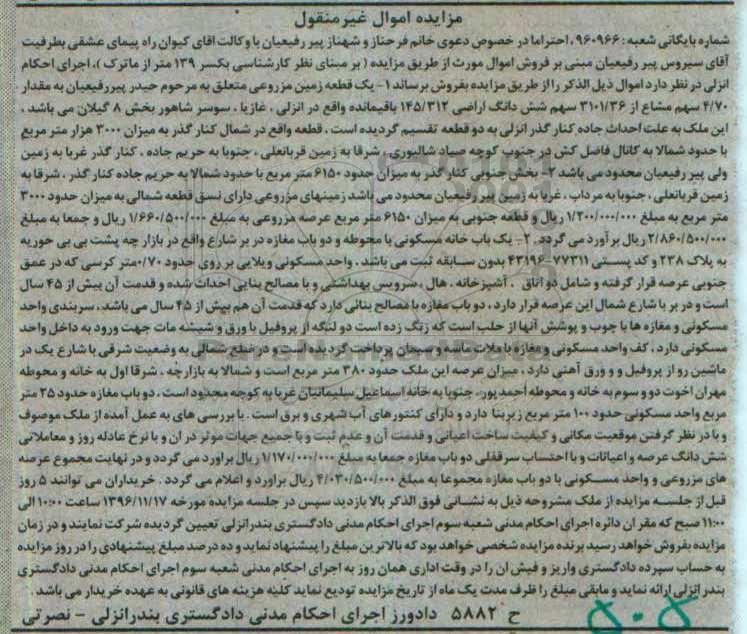 مزایده اموال غیر منقول
شماره بایگانی شعبه: ۹۶۰۹۶۶، احتراما در خصوص دعوی خانم فرحناز و شهناز پیر رفیعیان با وکالت اقای کیوان راه پیمای عشقی بطرفیت
آقای سیروس پیر رفیعیان مبنی بر فروش اموال مورث از طریق مزایده (بر مبنای نظر کارشناسی بکسر ۱۳۹ متر از ماترک)، اجرای احکام
انزلی در نظر دارد اموال ذیل الذکر را از طریق مزایده بفروش برساند ۱- یک قطعه زمین مزروعی متعلق به مرحوم حیدر پیررقیعیان به مقدار
۴/۷۰ سهم مشاع از ۳۱۰۱/۳۶ سهم شش دانگ اراضی ۱۴۵/۳۱۲ باقیمانده واقع در انزلی، غازیا، سوسر شاهور بخش ۸ گیلان می باشد.
این ملک به علت احداث جاده کنار گذر انزلی به دو قطعه تقسیم گردیده است. قطعه واقع در شمال کنار گذر به میزان ۳۰۰۰ هزار متر مربع
با حدود شمالا به کانال فاضل کش در جنوب کوچه صیاد شالیوری، شرقا به زمین قربانعلی، جنوبا به حریم جاده، کنار گذر غربا به زمین
ولی پیر رفیعیان محدود می باشد ۲- بخش جنوبی کنار گذر به میزان حدود ۶۱۵۰ متر مربع با حدود شمالا به حریم جاده کنار گذر، شرقا به
زمین قربانعلی، جنوبا به مرداب، غربا به زمین پیر رفیعیان محدود می باشد زمینهای مزروعی دارای نسق قطعه شمالی به میزان حدود ۳۰۰۰
متر مربع به مبلغ ۱/۲۰۰/۰۰۰/۰۰۰ ریال و قطعه جنوبی به میزان ۶۱۵۰ متر مربع عرصه مزروعی به مبلغ ۱/۶۶۰/۵۰۰/۰۰۰ ریال و جمعا به مبلغ
۲/۸۶۰/۵۰۰/۰۰۰ ریال بر آورد می گردد. ۲- یک باب خانه مسکونی با محوطه و دو باب مغازه در بر شارع واقع در بازار چه پشت بی بی حوریه
به پلاک ۲۳۸ و کد پستی ۷۷۳۱۱-۴۳۱۹۶ بدون سابقه ثبت می باشد. واحد مسکونی ویلایی بر روی حدود ۰/۷۰ متر کرسی که در عمق
جنوبی عرصه قرار گرفته و شامل دو اتاق، آشپزخانه، هال، سرویس بهداشتی و با مصالح بنایی احداث شده و قدمت آن بیش از ۴۵ سال
است و در بر با شارع شمال این عرصه قرار دارد، دو باب مغازه با مصالح بنائی دارد که قدمت آن هم بیش از ۴۵ سال می باشد، سربندی واحد
مسکونی و مغازه ها با چوب و پوشش آنها از حلب است که زنگ زده است دو لنگه از پروفیل با ورق و شیشه مات جهت ورود به داخل واحد
مسکونی دارد، کف واحد مسکونی و مغازه با ملات ماسه و سیمان پرداخت گردیده است و در ضلع شمالی به وضعیت شرقی با شارع یک در
ماشین رو از پروفیل و ورق آهنی دارد، میزان عرصه این ملک حدود ۳۸۰ متر مربع است و شمالا به بازارچه، شرقا اول به خانه و محوطه
مهران اخوت دو و سوم به خانه و محوطه احمد پور، جنوبا به خانه اسماعیل سلیمانیان غربا به کوچه محدود است، دو باب مغازه حدود ۲۵ متر
مربع واحد مسکونی حدود ۱۰۰ متر مربع زیربنا دارد و دارای کنتورهای آب شهری و برق است. با بررسی های به عمل آمده از ملک موصوف
و با در نظر گرفتن موقعیت مکانی و کیفیت ساخت اعیانی و قدمت آن و عدم ثبت و با جمیع جهات موثر در ان و با نرخ عادله روز و معاملاتی
شش دانگ عرصه و اعیانات و با احتساب سرقفلی دو باب مغازه جمعا به مبلغ ۱/۱۷۰/۰۰۰/۰۰۰ ریال براورد می گردد و در نهایت مجموع عرصه
های مزروعی و واحد مسکونی با دو باب مغازه مجموعا به مبلغ ۴/۰۳۰/۵۰۰/۰۰۰ ریال براورد و اعلام می گردد. خریداران می توانند ۵ روز
قبل از جلسه مزایده از ملک مشروحه ذیل به نشانی فوق الذکر بالا بازدید سپس در جلسه مزایده مورخه ۱۳۹۶/۱۱/۱۷ ساعت ۱۰:۰۰ الی
۱۱:۰۰ صبح که مقر ان دائره اجرای احکام مدنی شعبه سوم اجرای احکام مدنی دادگستری بندرانزلی تعیین گردیده شرکت نمایند و در زمان
مزایده بفروش خواهد رسید برنده مزایده شخصی خواهد بود که بالاترین مبلغ را پیشنهاد نماید و ده درصد مبلغ پیشنهادی را در روز مزایده
به حساب سپرده دادگستری واریز و فیش ان را در وقت اداری همان روز به اجرای احکام مدنی شعبه سوم اجرای احکام مدنی دادگستری
بندر انزلی ارائه نماید و مابقی مبلغ را ظرف مدت یک ماه از تاریخ مزایده تودیع نماید کلیه هزینه های قانونی به عهده خریدار می باشد.
ح ۵۸۸۲ دادورز اجرای احکام مدنی دادگستری بندرانزلی - نصرتی
۵۰۵